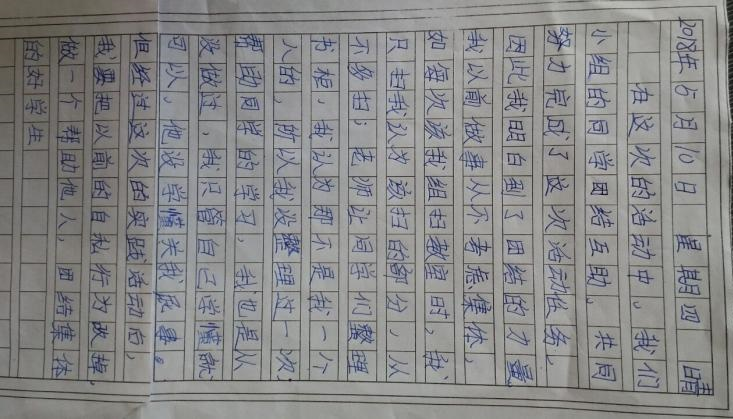 2018年5月10日 星期四 晴
在这次的活动中，我们
小组的同学团结互助，共同
努力完成了这次活动任务，
因此我明白到了团结的力量。
我以前做事从不考虑集体，
如每次该我组扫教室时，我
只扫我认为该扫的部分，从
不多扫；老师让同学们整理
书柜，我认为那不是我一个
人的，所以我没整理过一次，
帮助同学的学习，我也是从
没做过，我只管自己学懂就
可以，他没学懂关我屁事。
但经过这次的实践活动后，
我要把以前的自私行为改掉，
做一个帮助他人，团结集体
的好学生